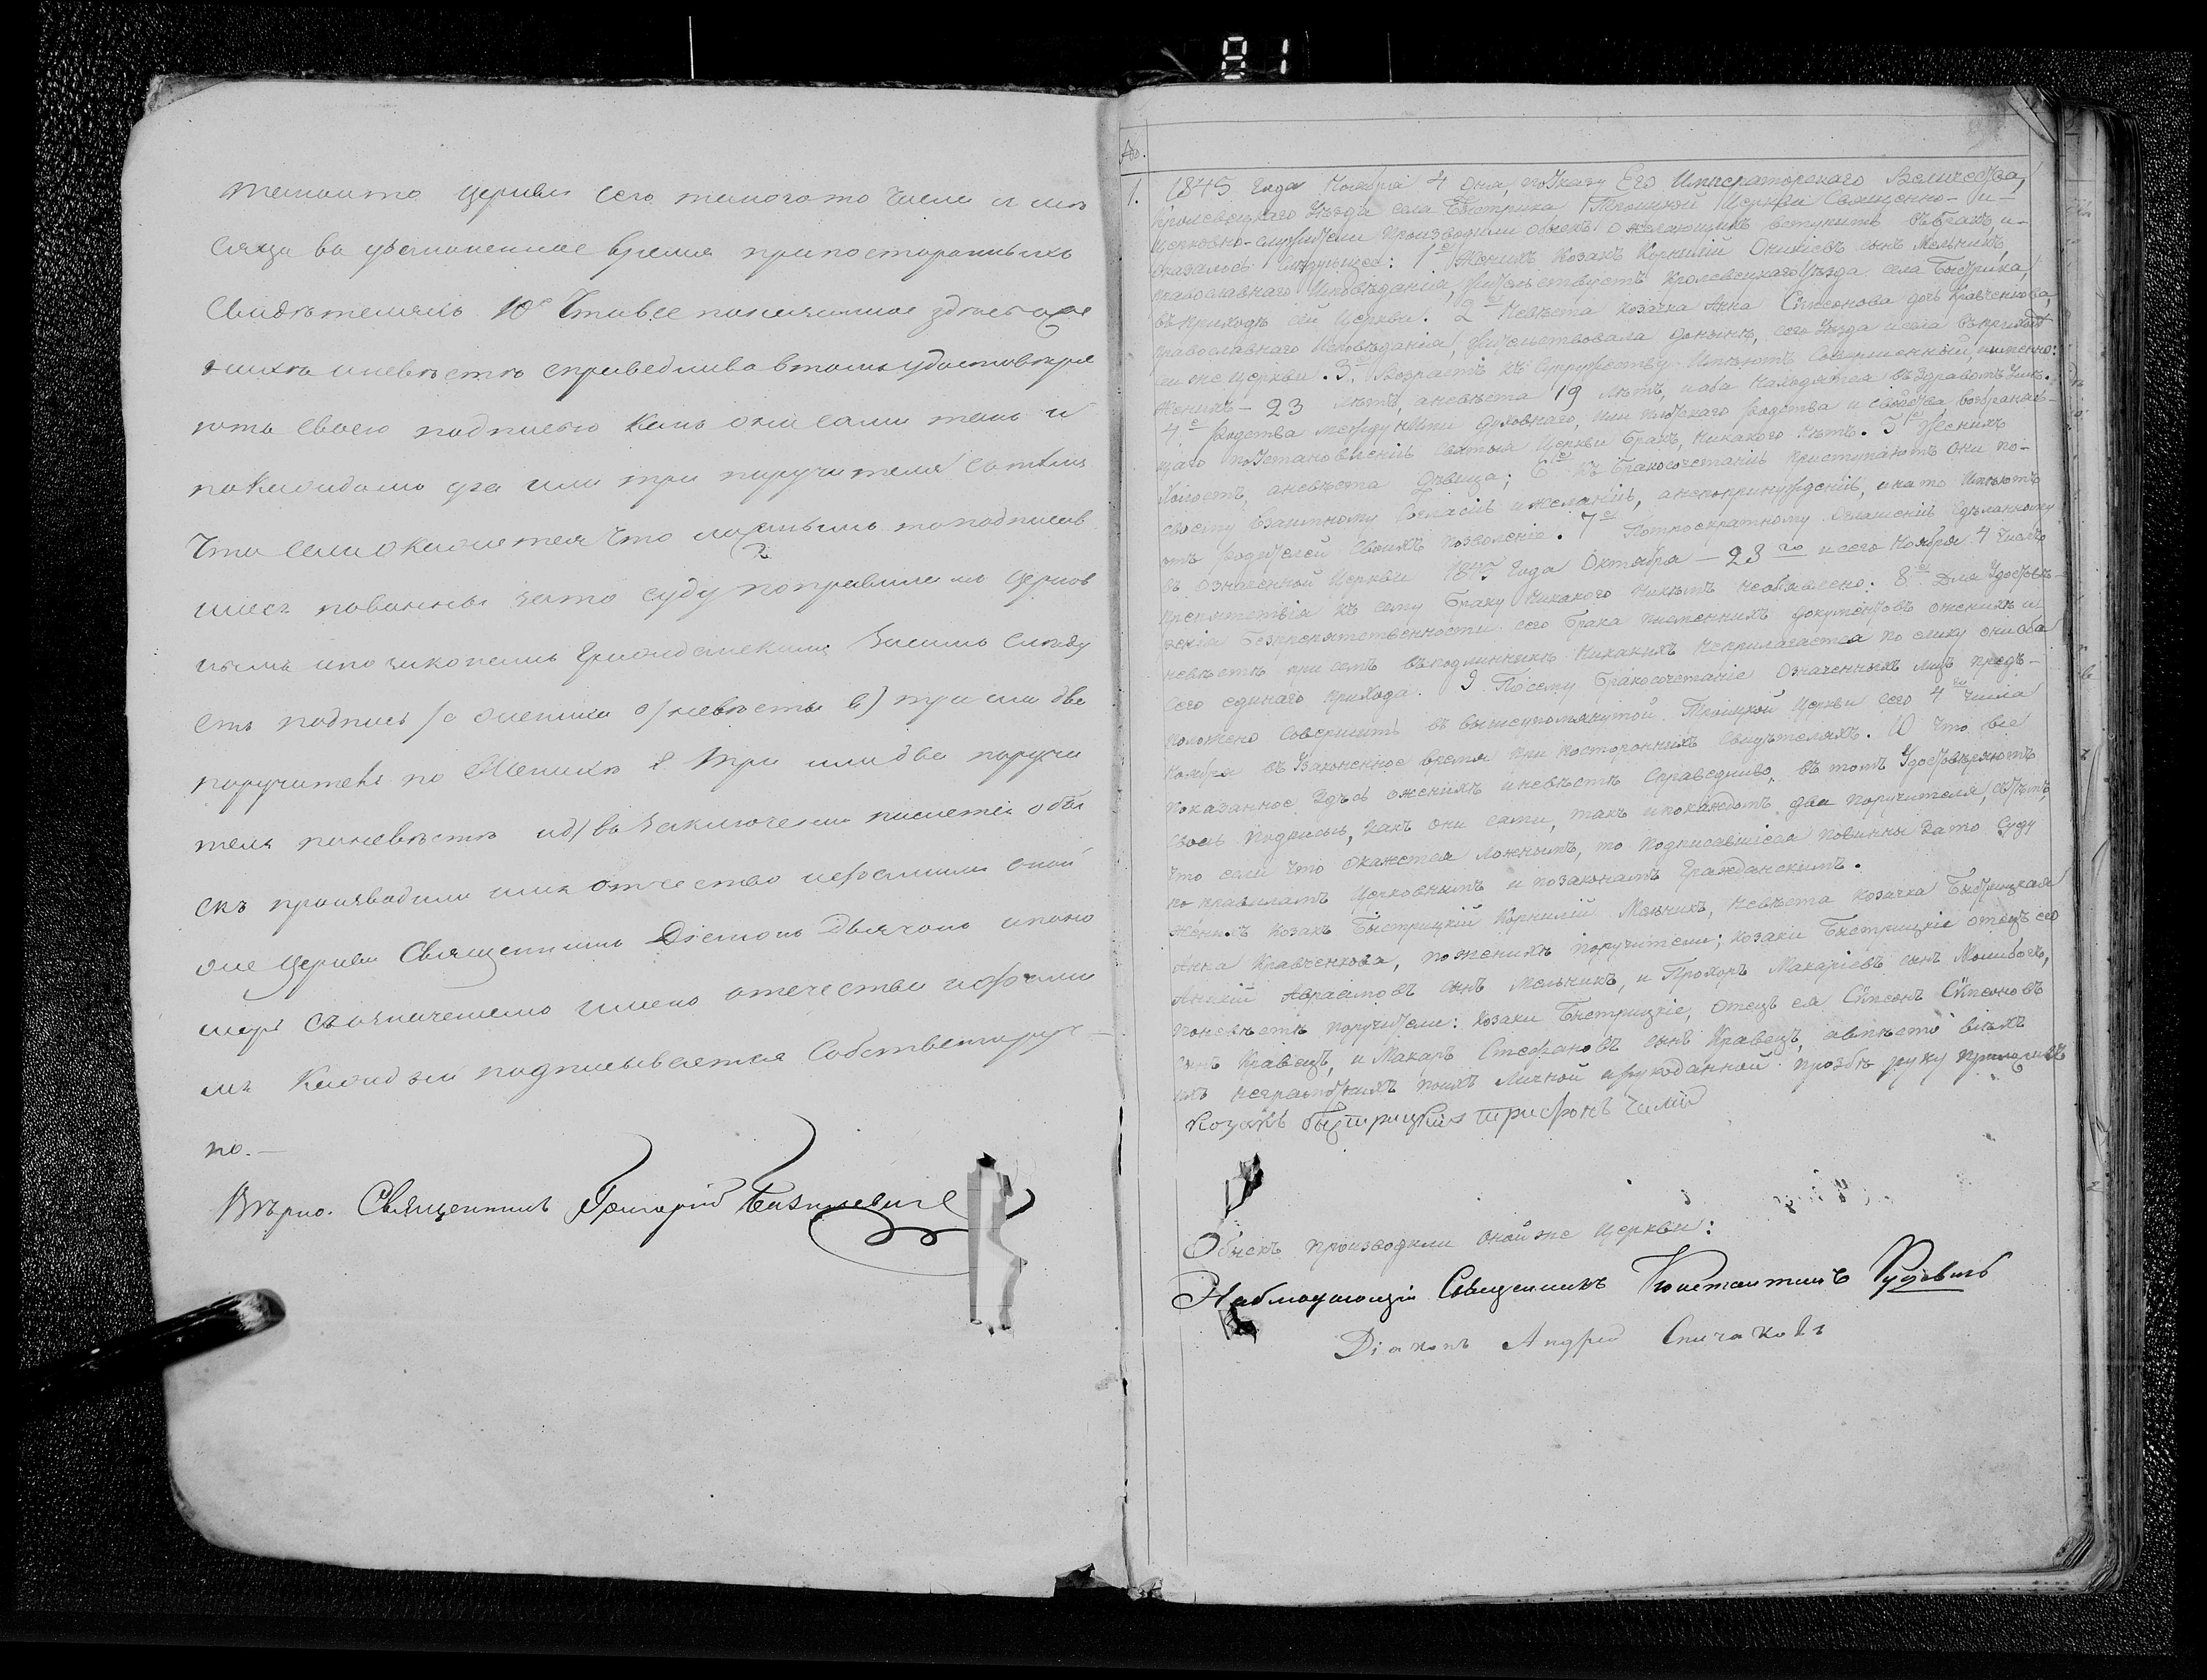 81
таковто церкви сего такогото числа и мѣ
сяца во узаконенное время припостороннихъ
Свидѣтеляхъ 10е Что все показанное здѣсь оже
нихѣ иневѣстѣ справедливо втомъ удостовѣря
ютъ своею подписью какъ они сами такъ и
покаждомъ два или три поручителя стѣмъ
Что если окажется что ложнымъ то подписав
шiеся повинны зато суду поправиламъ церков
нымъ ипозаконамъ Гражданскимъ Засимъ слѣду
етъ подпись а) жениха б) невѣсты в) три или два
поручителя по Женихѣ г три или два поручи
теля поневѣстѣ ид) въ заключенiи пишется обы
скъ производили имя отчество ифамилiи оной
же церкви Священникъ Дiаконъ Дьячокъ ипоно
марь съозначенiемъ имени отечества ифамилi
и Каждый подписывается Собственноруч-
но.—
Вѣрно. Священникъ Григорiй Базилевичъ
№.
1. 1845 года Ноября 4 дня, поУказу Его Императорскаго Величества,
Кролевецкаго Уѣзда села Быстрика Троицкой Церкви Священно- и-
Церковно-служители производили обыскъ ожелающихъ вступить въбракъ и-
оказалось слѣдующее: 1е Женихъ Козакъ Корнилiй Оникiевъ сынъ Мельникъ,
православнаго Исповѣданiя, жительствуетъ Кролевецкаго Уѣзда села Быстрика,
въприходѣ сей Церкви. 2е Невѣста козачка Анна Сѵмеонова дочь Кравченкова,
православнаго Исповѣданiя, жительствовала донынѣ, сего Уѣзда исела въприходѣ
сей же Церкви. 3е Возрастъ къ Супружеству Имѣютъ Совершенный, именно:
Женихъ - 23 лѣтъ, аневѣста 19 лѣтъ, иоба находятся въздравомъ Умѣ.
4е Родства между ними духовнаго, или плотскаго родства и свойства, возбраняю-
щаго поУстановленiю Святыя Церкви бракъ, никакого нѣтъ. 5е Женихъ
Холостъ, аневѣста Дѣвица; 6е Къ бракосочетанiю приступаютъ Они по-
своему Взаимному Согласiю ижеланiю, анепопринужденiю, ина то Имѣютъ
отъ родителей Своихъ позволенiе. 7е Потроекратному Оглашенiю Сдѣланному
въ означенной Церкви 1845 Года Октября - 23го исего Ноября 4 числъ
препятствiя къ сему браку никакого никѣмъ необявлено: 8е Для Удостовѣ-
ренiя безпрепятственности сего брака писменнихъ документовъ оженихѣ и
невѣстѣ при семъ въподлинникѣ никакихъ неприлагается по елику они оба
сего единаго прихода. 9 Посему бракосочетанiе Означенныхъ лицъ предъ-
положено Совершить въ вышеупомянутой Троицкой Церкви сего 4го числа
Ноября въ Узаконенное время при постороннихъ свидѣтеляхъ. 10 Что все
показанное здѣсь оженихѣ иневѣстѣ Справедливо, въ томъ Удостовѣряютъ
своею подписью, какъ они сами, такъ ипокаждомъ два поручителя, стѣмъ,
что если что окажется ложнымъ, то подписавшiеся повинны зато суду
по правиламъ Церковнымъ и позаконамъ Гражданскимъ.
Женихъ козакъ Быстрицкiй Корнилiй Мельникъ, невѣста козачка Быстрицкая
Анна Кравченкова, поженихѣ поручители; козаки Быстрицкiе отецъ его
Аникiй Авраамовъ сынъ Мельникъ, и Прохоръ Макарiевъ сынъ
поневѣстѣ поручители: козаки Быстрицкiе, отецъ ея Сѵмеонъ Сѵмеоновъ
сынъ Кравецъ, и Макаръ Стефановъ сынъ Кравецъ, авмѣсто всѣхъ
ихъ неграмотныхъ поихъ личной ирукоданной прозбѣ руку приложилъ
козакъ быстрицкiй трифонъ
Обыскъ производили оной же Церкви:
Наблюдающiй Священникъ Константинъ
Дiаконъ Андрей Спичаковъ